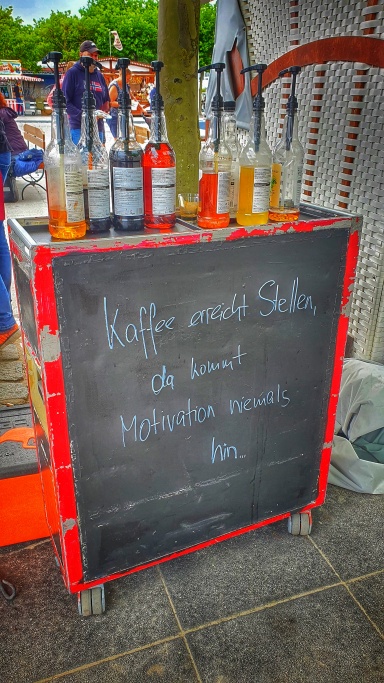 Kaffee erreicht Stellen,
da kommt
Motivation niemals
hin...